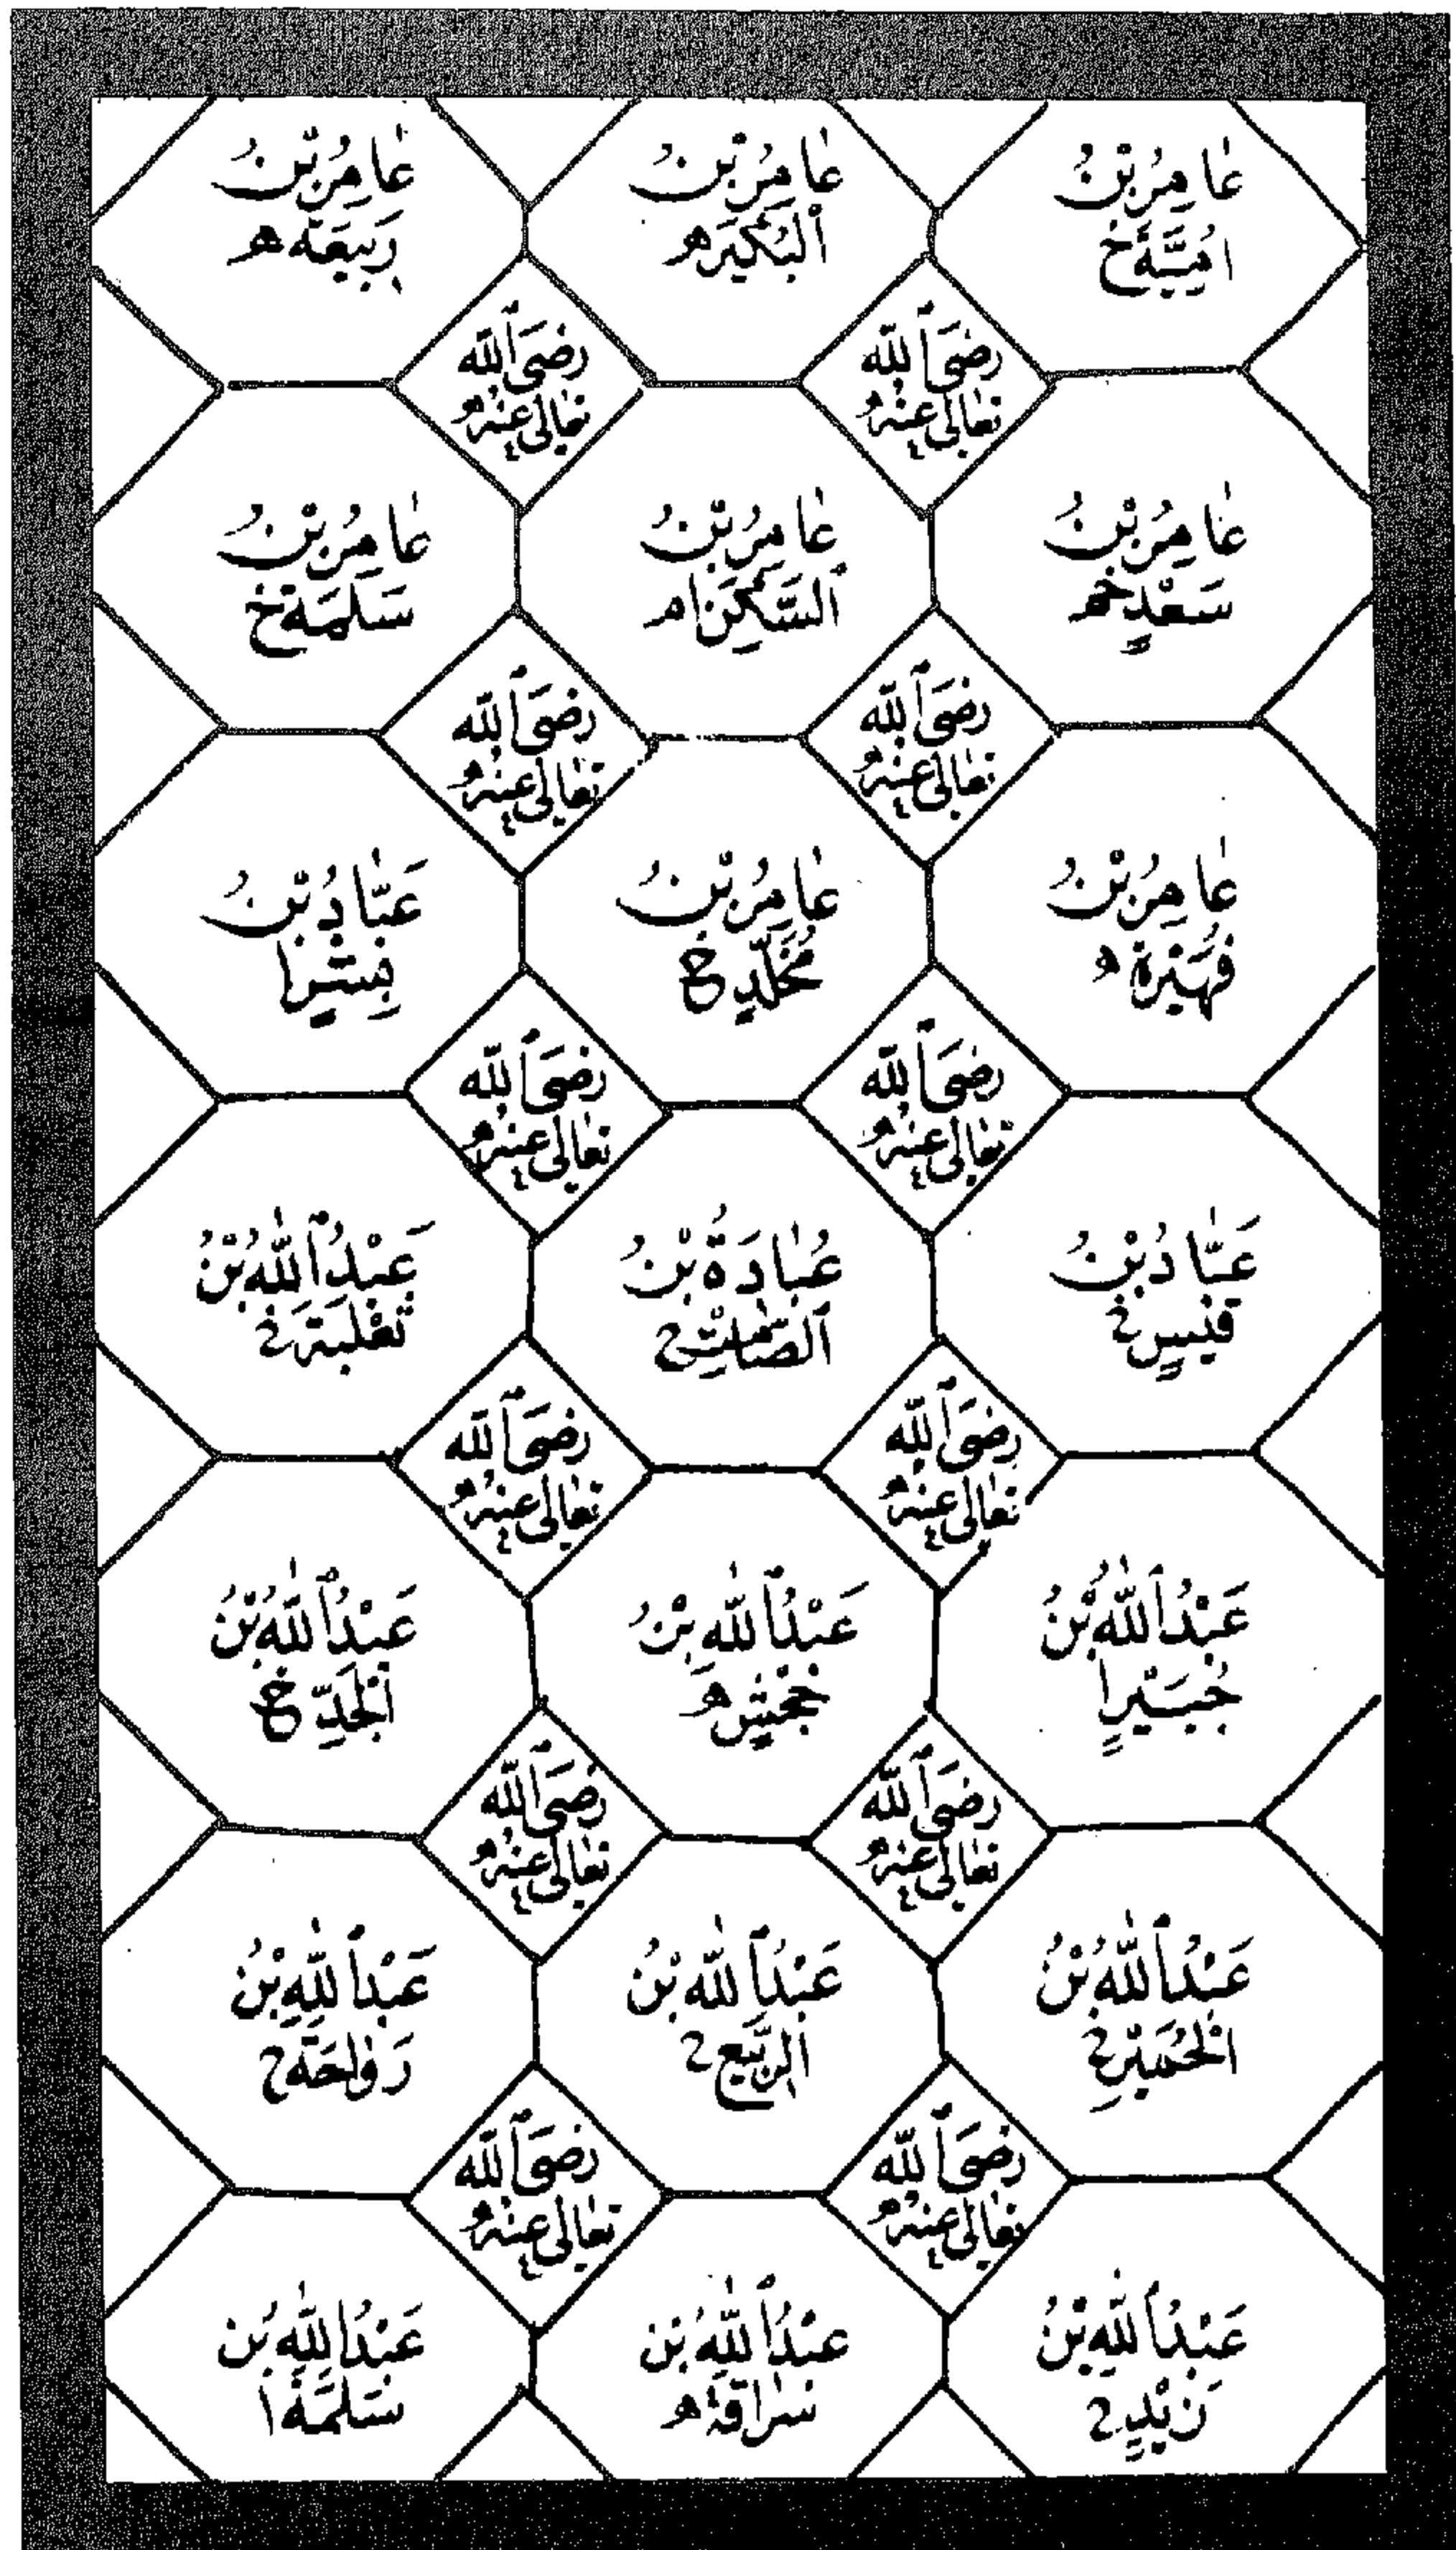 عَامِرُ بْنُ
اُمَيَّةَ خ
عَامِرُ بْنُ
ٱلْبُكَيْرِ ه
عَامِرُ بْنُ
رَبِيعَةَ ه
رَضِيَ ٱللّٰه
تَعَالٰى عَنْهُ
رَضِيَ ٱللّٰه
تَعَالٰى عَنْهُ
عَامِرُ بْنُ
سَعْدٍ خ
عَامِرُ بْنُ
ٱلسَّكَنِ ا
عَامِرُ بْنُ
سَلَمَةَ خ
رَضِيَ ٱللّٰه
تَعَالٰى عَنْهُ
رَضِيَ ٱللّٰه
تَعَالٰى عَنْهُ
عَامِرُ بْنُ
فُهَيْرَةَ ه
عَامِرُ بْنُ
مُخَلَّدٍ خ
عَبَّادُ بْنُ
بِشْرٍ ا
رَضِيَ ٱللّٰه
تَعَالٰى عَنْهُ
رَضِيَ ٱللّٰه
تَعَالٰى عَنْهُ
عَبَّادُ بْنُ
قَيْسٍ خ
عُبَادَةُ بْنُ
ٱلصَّامِتِ خ
عَبْدُ ٱللّٰهِ بْنُ
ثَعْلَبَةَ خ
رَضِيَ ٱللّٰه
تَعَالٰى عَنْهُ
رَضِيَ ٱللّٰه
تَعَالٰى عَنْهُ
عَبْدُ ٱللّٰهِ بْنُ
جُبَيْرٍ ا
عَبْدُ ٱللّٰهِ بْنُ
جَحْشٍ ه
عَبْدُ ٱللّٰهِ بْنُ
ٱلْجَدِّ خ
رَضِيَ ٱللّٰه
تَعَالٰى عَنْهُ
رَضِيَ ٱللّٰه
تَعَالٰى عَنْهُ
عَبْدُ ٱللّٰهِ بْنُ
ٱلْحُمَيِّرِ خ
عَبْدُ ٱللّٰهِ بْنُ
ٱلرَّبِيعِ خ
عَبْدُ ٱللّٰهِ بْنُ
رَوَاحَةَ خ
رَضِيَ ٱللّٰه
تَعَالٰى عَنْهُ
رَضِيَ ٱللّٰه
تَعَالٰى عَنْهُ
عَبْدُ ٱللّٰهِ بْنُ
زَيْدٍ خ
عَبْدُ ٱللّٰهِ بْنُ
سُرَاقَةَ ه
عَبْدُ ٱللّٰهِ بْنُ
سَلَمَةَ ا